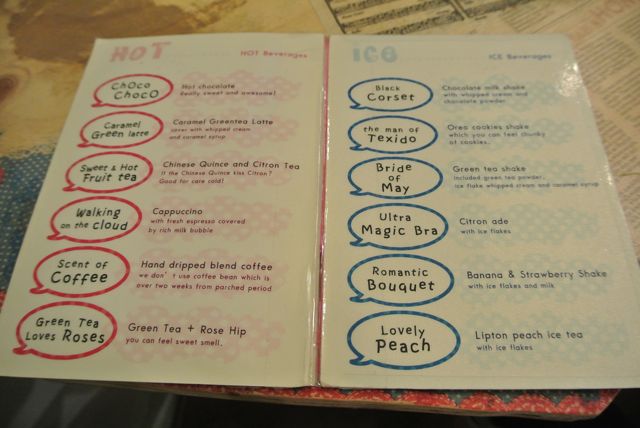 HOT
HOT Beverages
Choco
Choco
Hot chocolate
Really sweet and awesome!
Caramel
Green latte
Caramel Greentea Latte
cover with whipped cream
and caramel syrup
Sweet & Hot
Fruit tea
Chinese Quince and Citron Tea
If the Chinese Quince kiss Citron?
Good for care cold!
Walking
on the cloud
Cappuccino
with fresh espresso covered
by rich milk bubble
Scent of
Coffee
Hand dripped blend coffee
we don't use coffee bean which is
over two weeks from parched period
Green Tea
Loves Roses
Green Tea + Rose Hip
you can feel sweet smell.
ICE
ICE Beverages
Black
Corset
Chocolate milk shake
with whipped cream and
chocolate powder
the man of
Texido
Oreo cookies shake
which you can feel chunky
of cookies.
Bride
of
May
Green tea shake
included green tea powder,
ice flake whipped cream and caramel syrup
Ultra
Magic Bra
Citron ade
with ice flakes
Romantic
Bouquet
Banana & Strawberry Shake
with ice flakes and milk
Lovely
Peach
Lipton peach ice tea
with ice flakes